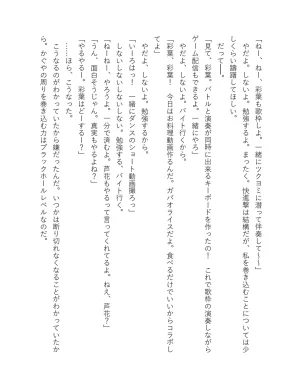 「ねー、ねー、彩葉も歌枠しよ。一緒にツクヨミに潜って伴奏して〜〜」
やだよ、しないよ。勉強するよ。まったく。快進撃は結構だが、私を巻き込むことについては少
しくらい躊躇してほしい。
だって――。
「見て、彩葉。バトルと演奏が同時に出来るキーボードを作ったの！　これで歌枠の演奏しながら
ゲーム配信もできるよ。一緒にやろ」
やだよ、しないよ。バイト行くから。
「彩葉、彩葉！　今日はお料理動画作るんだ。ガパオライスだよ。食べるだけでいいからコラボし
てよ」
やだよ、しないよ。勉強するから。
「いーろはっ！　一緒にダンスのショート動画撮ろっ」
しないしないしない。勉強する。バイト行く。
「ねーねー、やろうよ。一分で済むよ。芦花もやるって言ってくれてるよ。ねえ、芦花？」
「うん、面白そうじゃん。真実もやるよね？」
「やるやるー。彩葉はどーするー？」
……ほら、こうなった。
こうなるのがわかっていたから嫌だったんだ。いつかは断り切れなくなることがわかっていたか
ら。かぐやの周りを巻き込む力はブラックホールレベルなのだ。